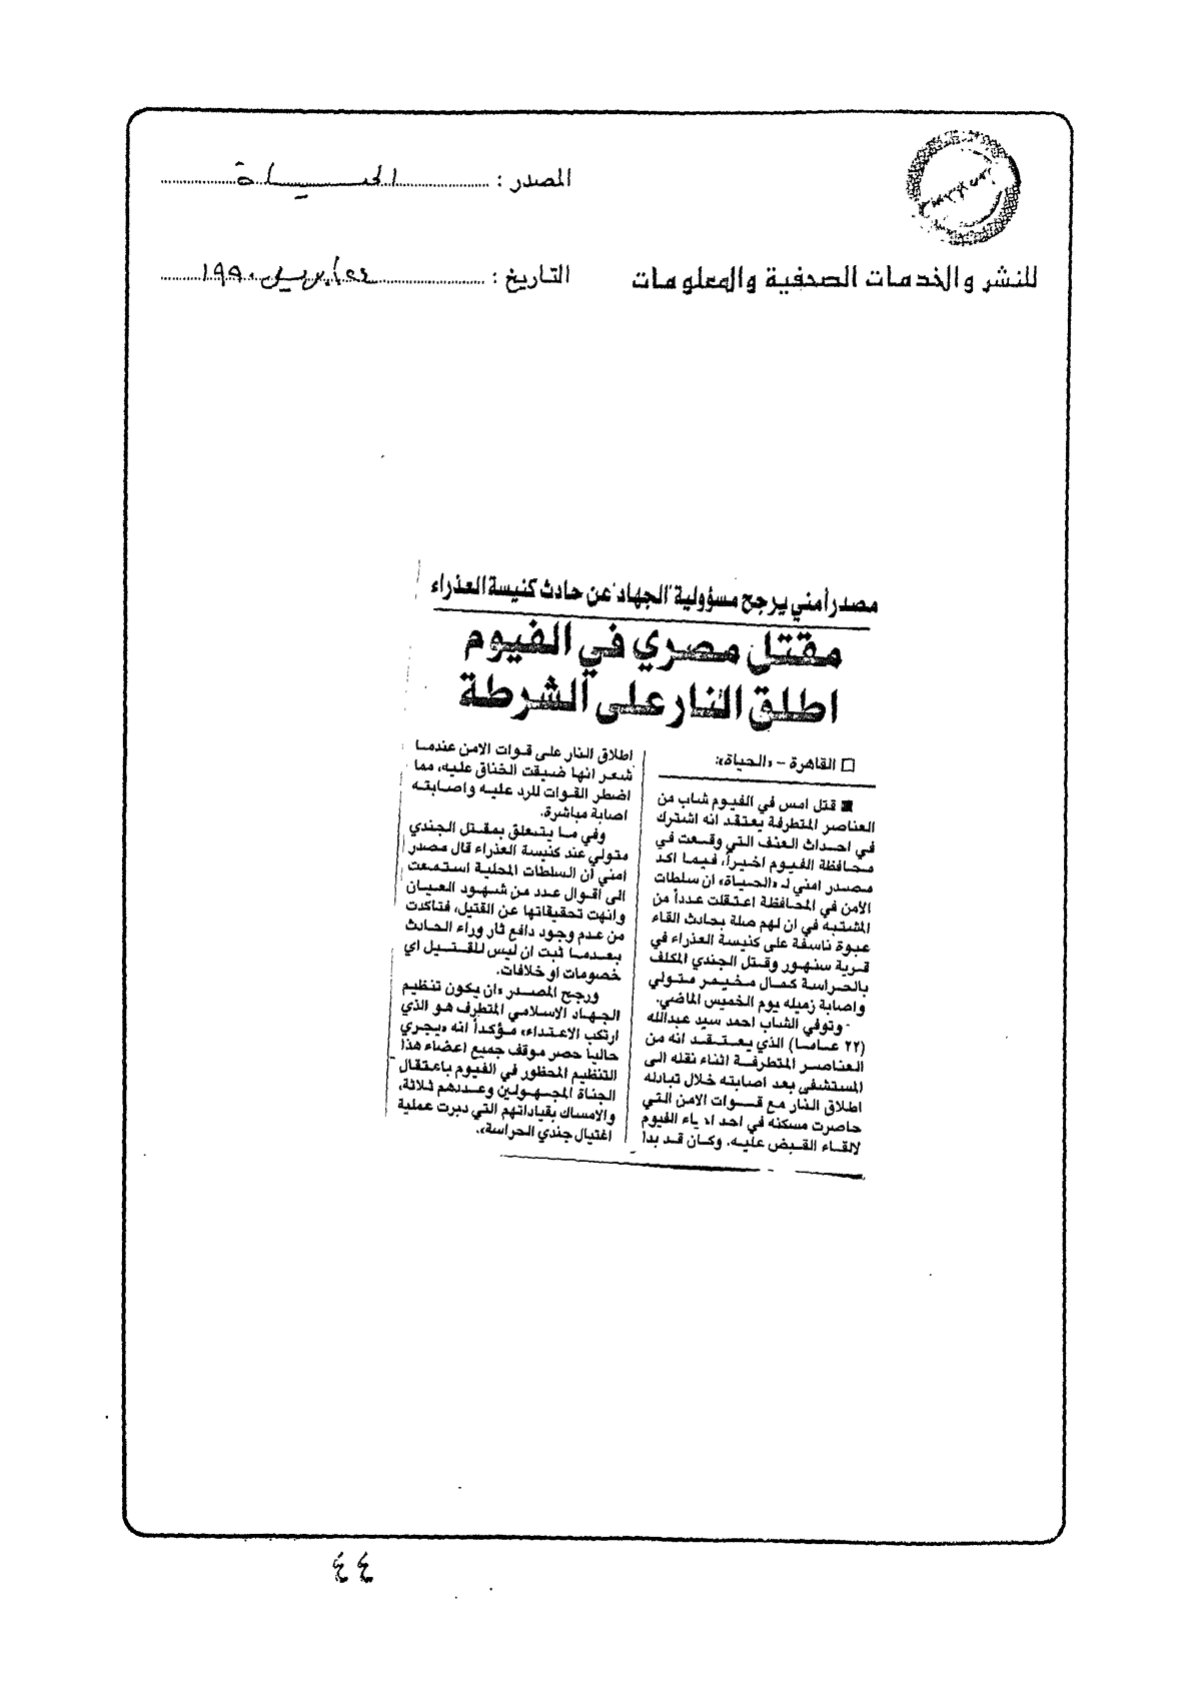 المصدر : الحياة
للنشر والخدمات الصحفية والمعلومات
التاريخ : ٢٤ ابريل ١٩٩٠
مصدر أمني يرجح مسؤولية "الجهاد" عن حادث كنيسة العذراء
مقتل مصري في الفيوم
اطلق النار على الشرطة
□ القاهرة – «الحياة»:
■ قتل امس في الفيوم شاب من
العناصر المتطرفة يعتقد انه اشترك
في احداث العنف التي وقعت في
محافظة الفيوم اخيراً، فيما اكد
مصدر امني لـ «الحياة» ان سلطات
الأمن في المحافظة اعتقلت عدداً من
المشتبه في ان لهم صلة بحادث القاء
عبوة ناسفة على كنيسة العذراء في
قرية سنهور وقتل الجندي المكلف
بالحراسة كمال مخيمر متولي
واصابة زميله يوم الخميس الماضي.
وتوفي الشاب احمد سيد عبدالله
(٢٢ عاما) الذي يعتقد انه من
العناصر المتطرفة اثناء نقله الى
المستشفى بعد اصابته خلال تبادله
اطلاق النار مع قوات الامن التي
حاصرت مسكنه في احد احياء الفيوم
لالقاء القبض عليه. وكان قد بدأ
اطلاق النار على قوات الامن عندما
شعر انها ضيقت الخناق عليه، مما
اضطر القوات للرد عليه واصابته
اصابة مباشرة.
وفي ما يتعلق بمقتل الجندي
متولي عند كنيسة العذراء قال مصدر
امني أن السلطات المحلية استمعت
الى اقوال عدد من شهود العيان
وانهت تحقيقاتها عن القتيل، فتاكدت
من عدم وجود دافع ثار وراء الحادث
بعدما ثبت ان ليس للقتيل اي
خصومات او خلافات.
ورجح المصدر «ان يكون تنظيم
الجهاد الاسلامي المتطرف هو الذي
ارتكب الاعتداء» مؤكداً انه «يجري
حاليا حصر موقف جميع اعضاء هذا
التنظيم المحظور في الفيوم باعتقال
الجناة المجهولين وعددهم ثلاثة،
والامساك بقياداتهم التي دبرت عملية
اغتيال جندي الحراسة».
٤٤